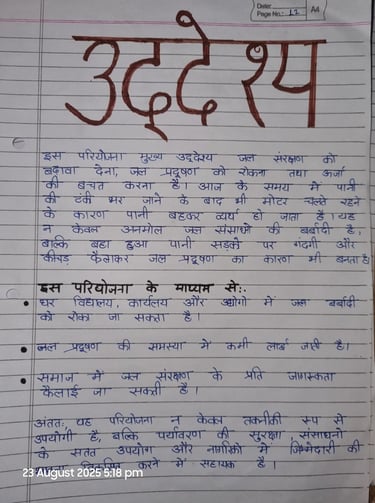 Date:
Page No.: 12
A4
उद्देश्य
इस परियोजना मुख्य उद्देश्य जल संरक्षण को
बढ़ावा देना, जल प्रदूषण को रोकना तथा ऊर्जा
की बचत करना है। आज के समय में पानी
की टंकी भर जाने के बाद भी मोटर चलते रहने
के कारण पानी बहकर व्यर्थ हो जाता है। यह
न केवल अनमोल जल संसाधो की बर्बादी है,
बल्कि बहा हुआ पानी सड़कों पर गंदगी और
कीचड़ फैलाकर जल प्रदूषण का कारण भी बनता है।
इस परियोजना के माध्यम से:-
• घर विद्यालय, कार्यलय और उद्योगो में जल बर्बादी
को रोका जा सकता है।
• जल प्रदूषण की समस्या में कमी लाई जाती है।
• समाज में जल संरक्षण के प्रति जागरूकता
फैलाई जा सकती है।
अंततः, यह परियोजना न केवल तकनीकी रूप से
उपयोगी है, बल्कि पर्यावरण की सुरक्षा, संसाधनो
के सतत उपयोग और नागरिको में जिम्मेदारी की
करने में सहायक है।
23 August 2025 5:18 pm